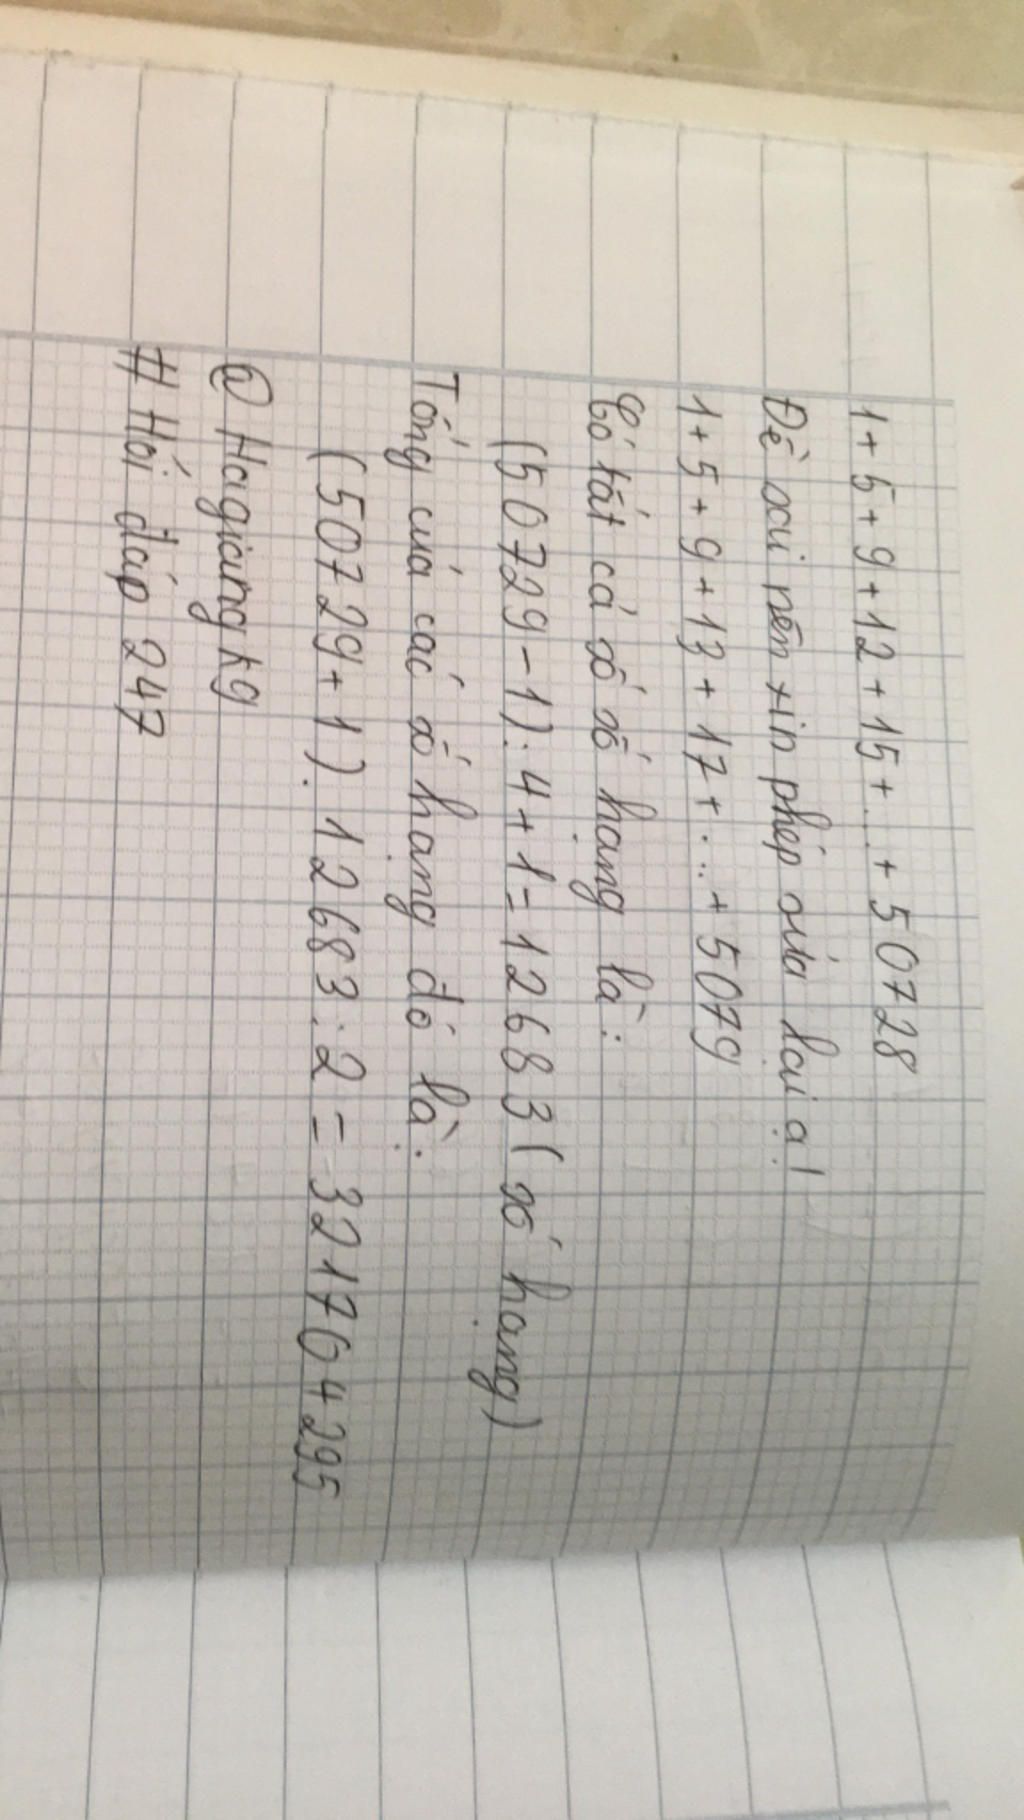 1 + 5 + 9 + 12 + 15 + ... + 50728
Đề sai nên xin phép sửa lại ạ!
1 + 5 + 9 + 13 + 17 + ... + 5079
Có tất cả số số hạng là:
(50729 - 1) : 4 + 1 = 12683 (số hạng)
Tổng của các số hạng đó là:
(50729 + 1) . 12683 : 2 = 321764295
@ Hagiang kg
# Hỏi đáp 247